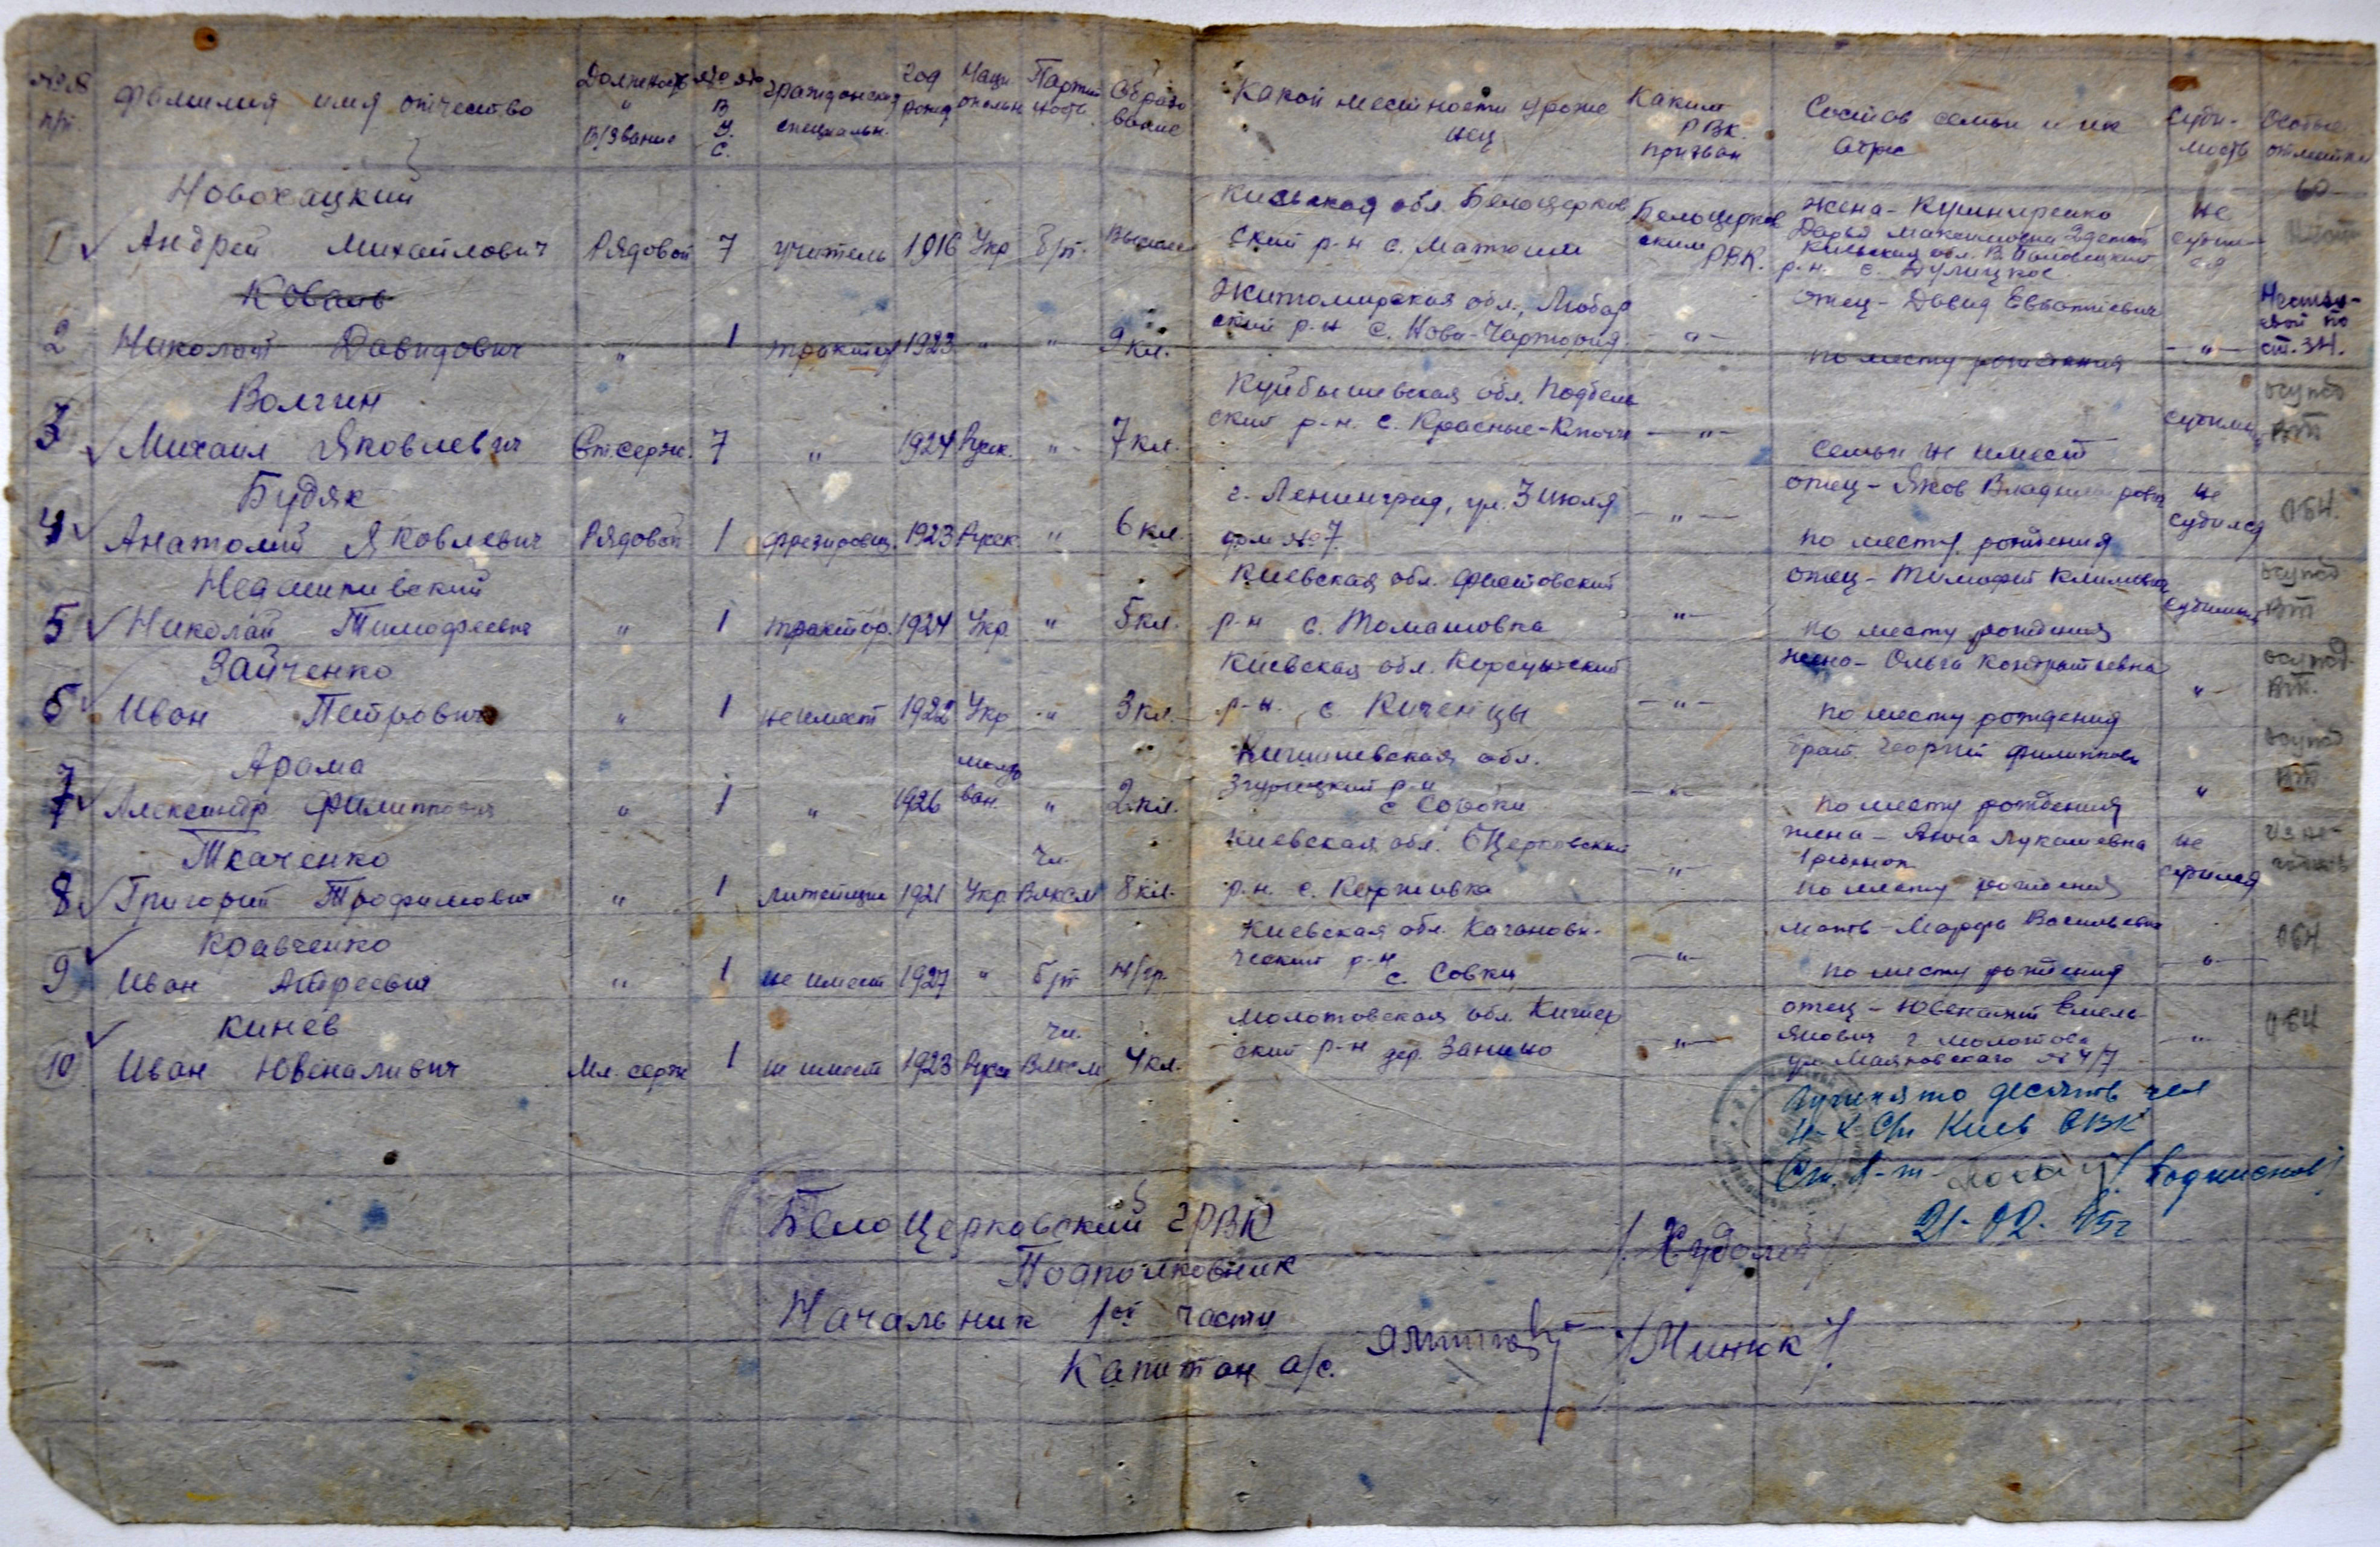 №№ п/п. Фамилия имя отчество Должность и В/звание №№ В У. С. Гражданская специальн. Год рожд Наци ональн Партий ность Образо вание Какой местности уроже нец Каким РВК. призван Состав семьи и их адрес Суди- мость Особые отметки
Новохацкий
1 Андрей Михайлович Рядовой 7 учитель 1916 Укр б/п. Киевская обл. Белоцерков ский р-н с. Матюши Белоцерков ским РВК. жена - Дарья Максимовна 2 детей Киевская обл. р-н. с. не
Коваль
2 Николай Давидович " 1 1923 " " 9 кл. Житомирская обл., Любар ский р-н с. Нова-Чартория -"- отец - Давид по месту рождения -"- ст. 34.
Волгин
3 Михаил Яковлевич Ст. серж. 7 " 1924 Русск. " 7 кл. Куйбышевская обл. Подбель ский р-н. с. Красные-Ключи -"- семьи не имеет ВТ
Будяк
4 Анатолий Яковлевич Рядовой 1 фрезировщ. 1923 Русск " 6 кл. г. Ленинград, ул. 3 июля дом №7. -"- отец - Яков Владимирович по месту рождения не судился ОБН.
5 Николай Тимофеевич " 1 трактор. 1924 Укр. " 5 кл. Киевская обл. Фастовский р-н с. Томашовка "- отец - Тимофей Климович по месту рождения ВТ
Зайченко
6 Иван Петрович " 1 не имеет 1922 Укр " 3 кл. Киевская обл. Корсунский р-н. с Киченцы -"- жена - Ольга Кондратьевна по месту рождения " ВТ.
Арама
7 Александр Филиппович " 1 " 1926 молда ван. " 2 кл. Кишиневская обл. Згурицкий р-н с Сороки -"- брат Георгий Филиппович по месту рождения " ВТ.
Ткаченко
8 Григорий Трофимович " 1 литейщик 1921 Укр. Чл. ВЛКСМ 8 кл. Киевская обл. БЦерковский р.н. с. -"- жена - Анна Лукашевна 1 ребенок по месту рождения не судился
Кравченко
9 Иван Андреевич " 1 не имеет 1927 " б/п н/гр. Киевская обл. Каганови- ческий р-н с. Совки -"- мать - Марфа Васильевна по месту рождения -"- ОБН
Кинев
10 Иван Ювеналивич Мл. серж 1 не имеет 1923 Русск Чл. ВЛКСМ 4 кл. Молотовская обл. ский р-н дер. Занино -"- отец - Ювеналий Емель янович г. Молотов ул. Маяковского № 4/7 -"- ОБН
десять чел
Киев ОВК
Ст. Л-т
21-02. 45г
Белоцерковский ГРВК
Подполковник /Худолей/
Начальник 1ой части
Капитан а/с. /Минюк/